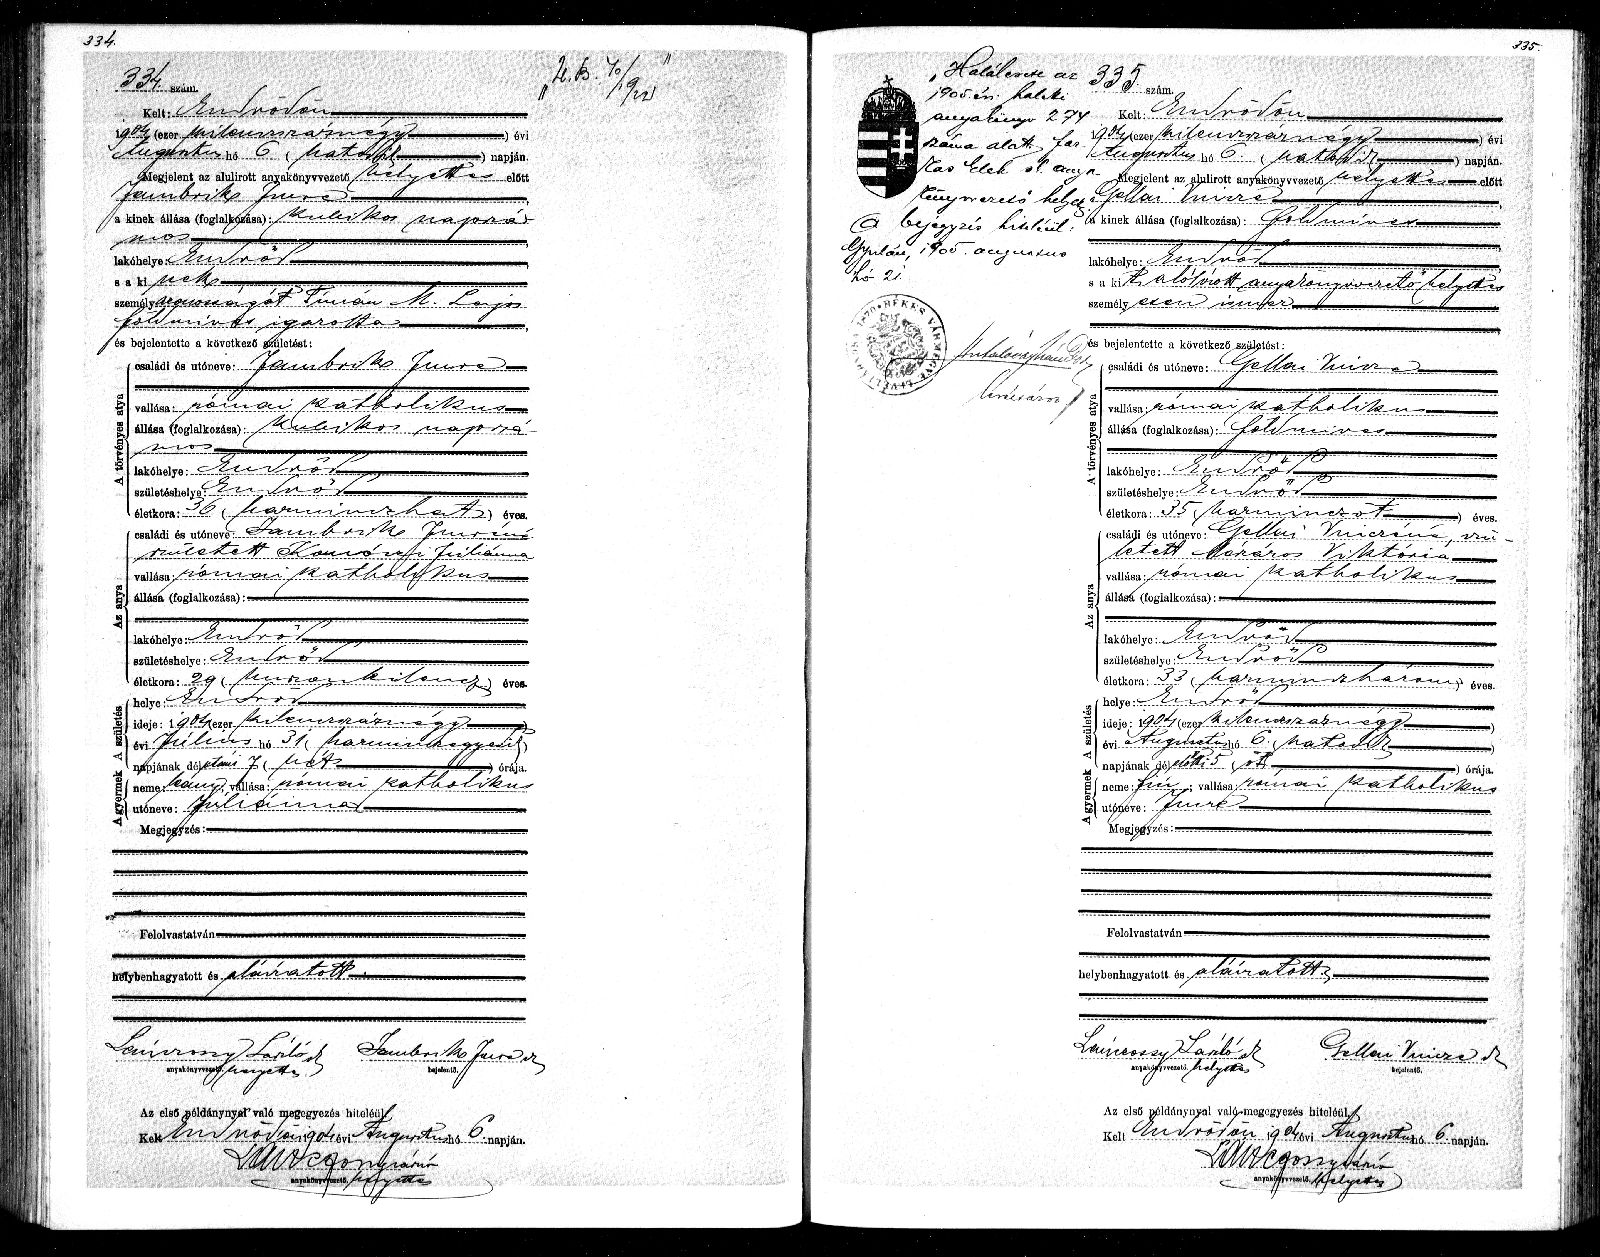 334.
334. szám.
Kelt: Endrődön
1904 (ezer kilenczszáznégy) évi
Augusztus hó 6 (hatodik) napján.
Megjelent az alulirott anyakönyvvezető helyettes előtt
Jambrik Imre
a kinek állása (foglalkozása): kubikos napszá-
mos
lakóhelye: Endrőd
s a ki nek
személyazonosságát Timár M. Lajos
földmives igazolta
és bejelentette a következő születést:
A törvényes atya
családi és utóneve: Jambrik Imre
vallása: római katholikus
állása (foglalkozása): kubikos napszá-
mos
lakóhelye: Endrőd
születéshelye: Endrőd
életkora: 36 (harminczhat) éves.
Az anya
családi és utóneve: Jambrik Imréné
született Juliánna
vallása: római katholikus
állása (foglalkozása):
lakóhelye: Endrőd
születéshelye: Endrőd
életkora: 29 (huszonkilencz) éves.
A születés
helye: Endrőd
ideje: 1904 (ezer kilenczszáznégy)
évi Július hó 31 (harminczegyedik)
napjának délutáni 7 (hét) órája.
A gyermek
neme: leány; vallása: római katholikus
utóneve: Juliánna
Megjegyzés:
Felolvastatván
helybenhagyatott és aláiratott.
Lánczossy László
anyakönyvvezető. helyettes
Jambrik Imre
bejelentő.
Az első példánynyal való megegyezés hiteléül,
Kelt Endrődön 1904 évi Augusztus hó 6. napján.
anyakönyvvezető. helyettes
335.
„Haláleset az
1905. évi haláli
anyakönyv 274
száma alatt. Far-
kas Elek s. k. anya-
könyvvezető helyet
A bejegyzés hiteléül:
Gyulán, 1905. augusztus
hó 21
BÉKÉS VÁRMEGYE LEVÉLTÁRA
335 szám.
Kelt: Endrődön
1904 (ezer kilenczszáznégy) évi
Augusztus hó 6. (hatodik) napján.
Megjelent az alulirott anyakönyvvezető helyettes előtt
Gellai Vincze
a kinek állása (foglalkozása): földmives
lakóhelye: Endrőd
s a ki t alólirott anyakönyvvezető helyettes
személyesen ismer
és bejelentette a következő születést:
A törvényes atya
családi és utóneve: Gellai Vincze
vallása: római katholikus
állása (foglalkozása): földmives
lakóhelye: Endrőd
születéshelye: Endrőd
életkora: 35 (harminczöt) éves.
Az anya
családi és utóneve: Gellai Vinczéné, szü-
letett Viktória
vallása: római katholikus
állása (foglalkozása):
lakóhelye: Endrőd
születéshelye: Endrőd
életkora: 33 (harminczhárom) éves.
A születés
helye: Endrőd
ideje: 1904 (ezer kilenczszáznégy)
évi Augusztus hó 6. (hatodik)
napjának délelőtti 5 (öt) órája.
A gyermek
neme: fiú; vallása: római katholikus
utóneve: Imre
Megjegyzés:
Felolvastatván
helybenhagyatott és aláiratott
Lánczossy László
anyakönyvvezető. helyettes
Gellai Vincze
bejelentő.
Az első példánynyal való megegyezés hiteléül,
Kelt Endrődön 1904 évi Augusztus hó 6. napján.
anyakönyvvezető. helyettes